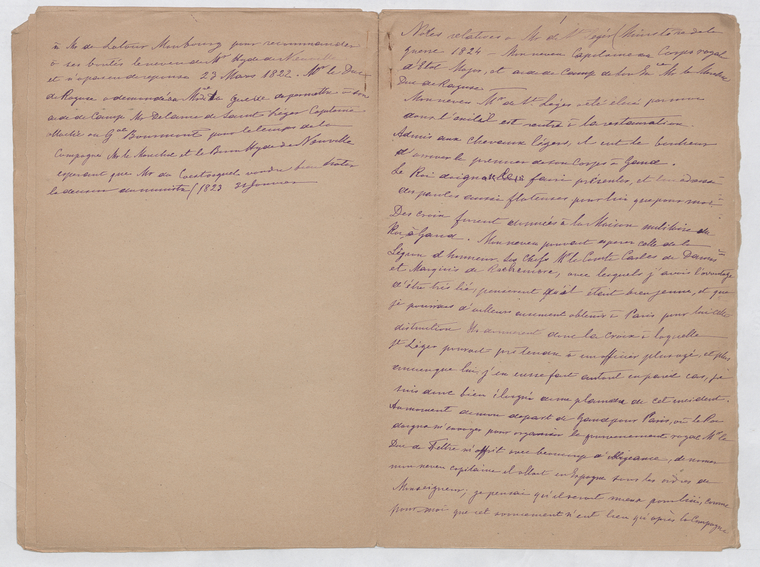 à Mr de Latour Maubourg pour recommander
à ses bontés le neveu de Mr Hyde de Neuville
et n'a pas eu de reponse 23 Mars 1822. Mr le Duc
de Raguse a demandé au Mtre la guerre de permettre à son
aide de Camp Mr Delaune de Saint Léger Capitaine
au Gal Bourmont pour le temps de la
Campagne Mr le Marechal et le Baron Hyde de Neuville
esperent que Mr de Caertorquet voudra bien
la devant au ministre (1823 21 Janvier
Notes relatives à Mr de St Léger (Ministère de la
guerre 1824 – Mon neveu Capitaine au Corps royal
d'Etat Major, et aide de Camp de Son Exce Mr le Marechal
Duc de Raguse
Mon neveu Mr de St Léger, été élevé par moi
dans l'exil et est rentré à la restauration
Admis aux chevaux légers, il eut le bonheur
d'arriver le premier de son Corps à Gand.
Le Roi daigna le faire présenter, et lui adressa
des paroles aussi flatteuses pour lui que pour moi.
Des croix furent données à la Maison militaire du
Roi à Gand. Mon neveu pouvait esperer celle de la
Légion d'honneur. Ses Chefs Mr le Comte Charles de Damas
et Marquis de, avec lesquels j'avais l'avantage
d'être très lié, penserent qu'il était bien jeune, et que
je pourrais d'ailleurs aisement obtenir à Paris pour lui cette
distinction Ils donnerent donc la croix à laquelle
St Léger pouvait prétendre à un officier plus agé et plus
ancien que lui, j'en eusse fait autant en pareil cas, je
suis donc bien éloigné de me plaindre de cet incident.
Au moment de mon depart de Gand pour Paris, où le Roi
daigna m'envoyer pour organiser le gouvernement royal Mr le
Duc de Feltre m'offrit avec beaucoup d', de nommer
mon neveu capitaine il allait en Espagne sous les ordres de
Monseigneur; je pensai qu'il serait mieux pour lui, comme
pour moi que cet avancement n'eut lieu qu'après la Campagne